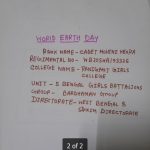 WORLD EARTH DAY
NAME - CADET
REGIMENTAL NO -
COLLEGE NAME - RANIGANJ GIRLS
COLLEGE
UNIT - 5 BENGAL GIRLS BATTALIONS
GROUP - BARDHAMAN GROUP
DIRECTORATE - WEST BENGAL &
SIKKIM DIRECTORATE
2 of 2